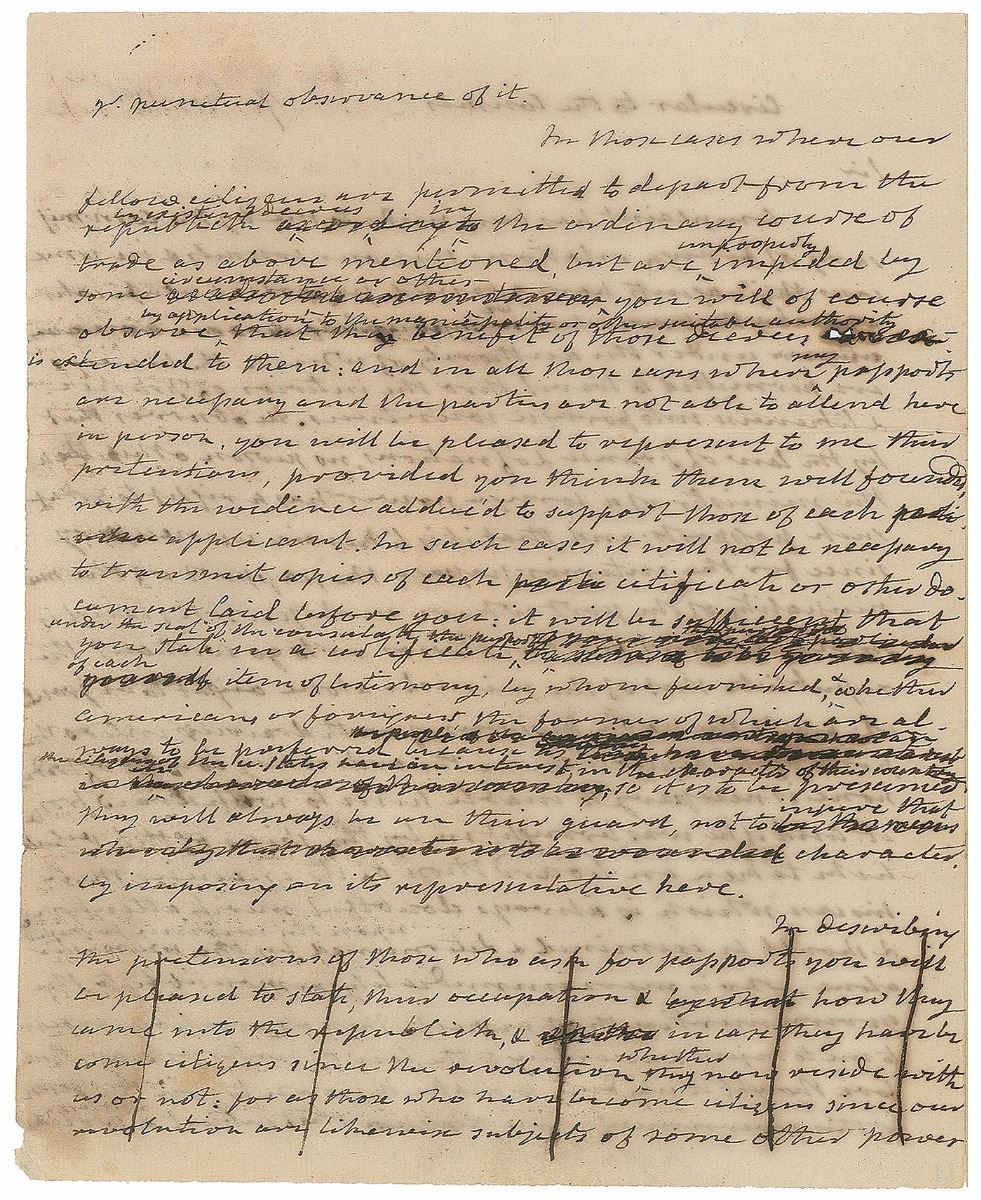 yr. punctual observance of it.
In those cases where our
fellow citizens are permitted to depart from the
by existing decrees in
republick according to the ordinary course of
improperly
trade as above mentioned, but are impeded by
circumstance or other
some you will of course
by application to the municipality or other suitable authority
observe, that the benefit of those decrees
my
is extended to them: and in all those cases where passports
are necessary and the parties are not able to attend here
in person, you will be pleased to represent to me their
pretentions, provided you think them well founded,
with the evidence adduc'd to support those of each parti
applicant. In such cases it will not be necessary
to transmit copies of each certificate or other do-
cument laid before you: it will be sufficient that
under the seal of the consulate the purport
you state in a certificate
of each
item of testimony, by whom furnished, & whether
americans or foreigners the former of which are al-
ways to be preferred because
the citizens of the U. States have an interest in the character of their country
so it is to be presumed
injure that
they will always be on their guard, not to
character
by imposing on its representative here.
In describing
the pretensions of those who ask for passports you will
be pleased to state, their occupation & by what how they
came into the republick, & whether in case they have be
come citizens since the revolution,
whether
they now reside with
us or not: for as those who have become citizens since our
revolution are likewise subjects of some other power